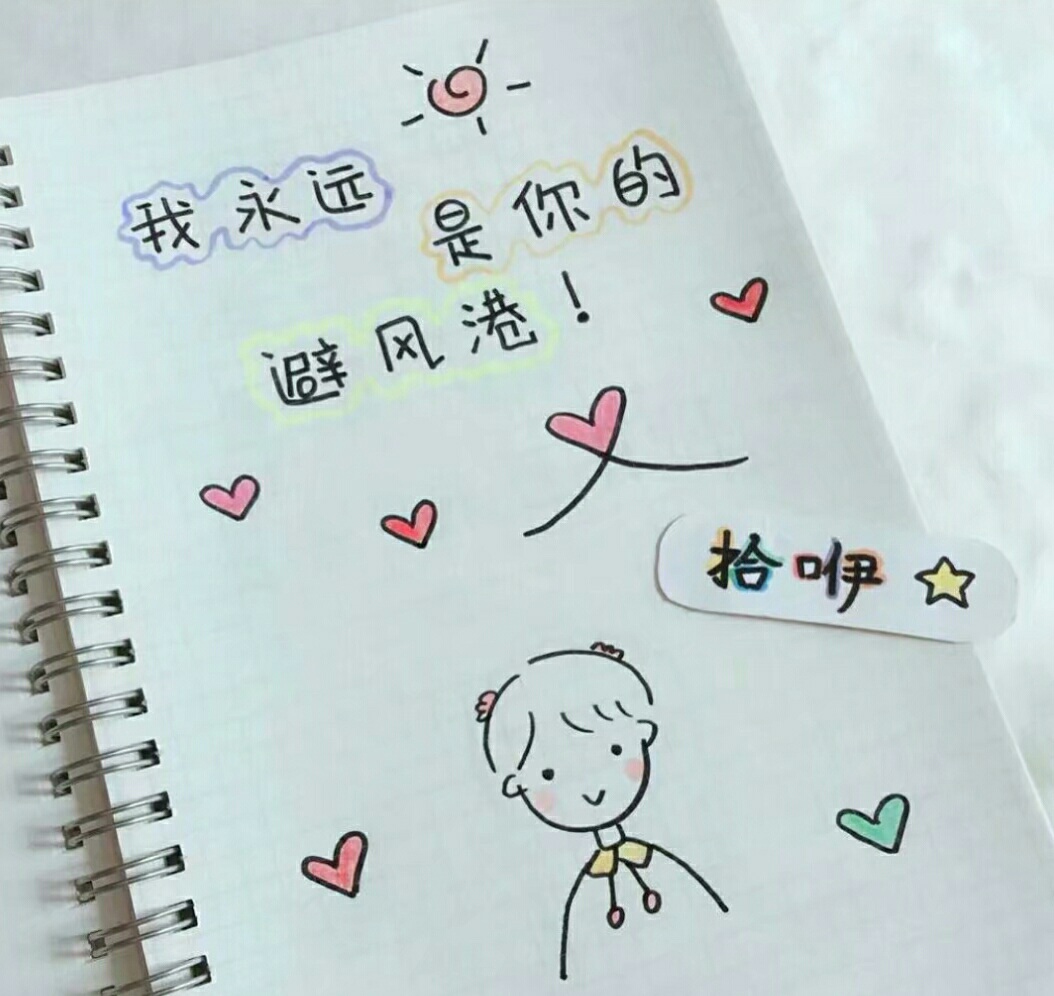 我永远是你的
避风港！
拾咿